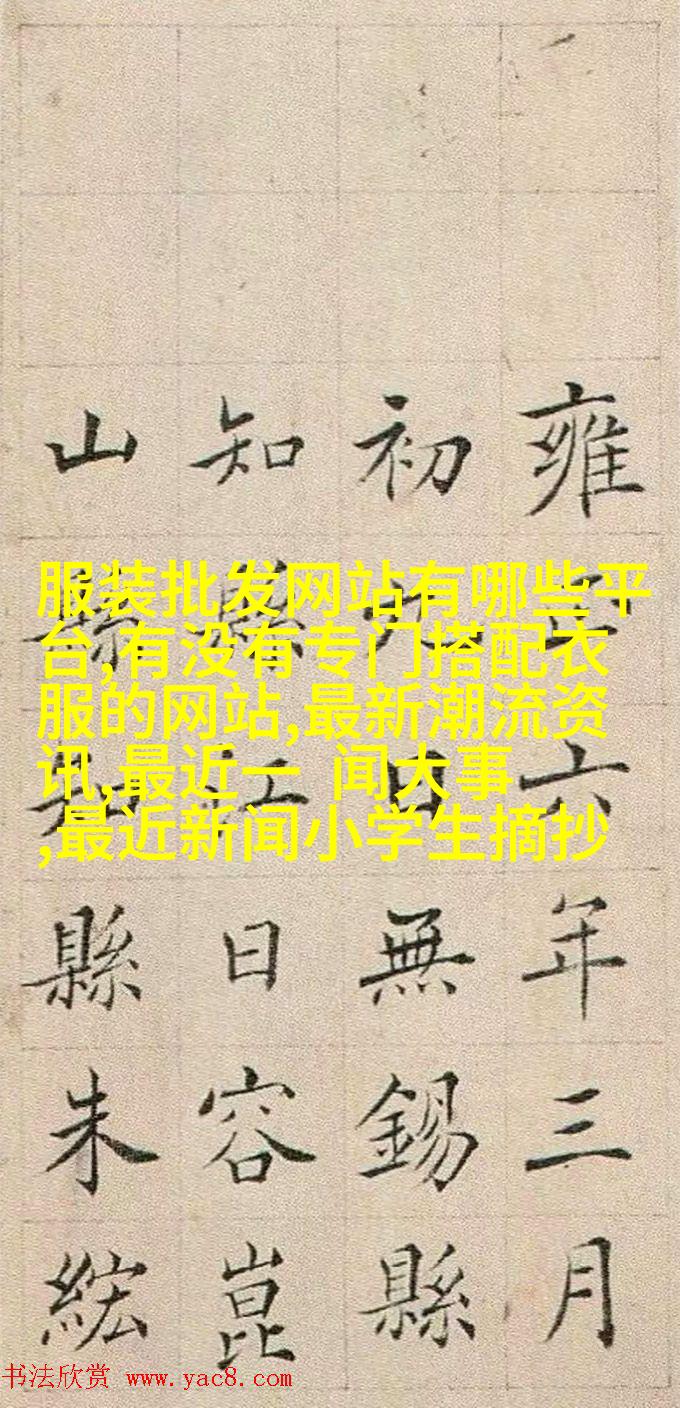 服装批发网站有哪些平
台,有没有专门搭配衣
服的网站,最新潮流资
讯,最近一 闻大事
,最近新闻小学生摘抄
雍正六年三月
初日無錫縣
知縣江日容崑
山縣知縣朱紘
书法欣赏 www.yac8.com